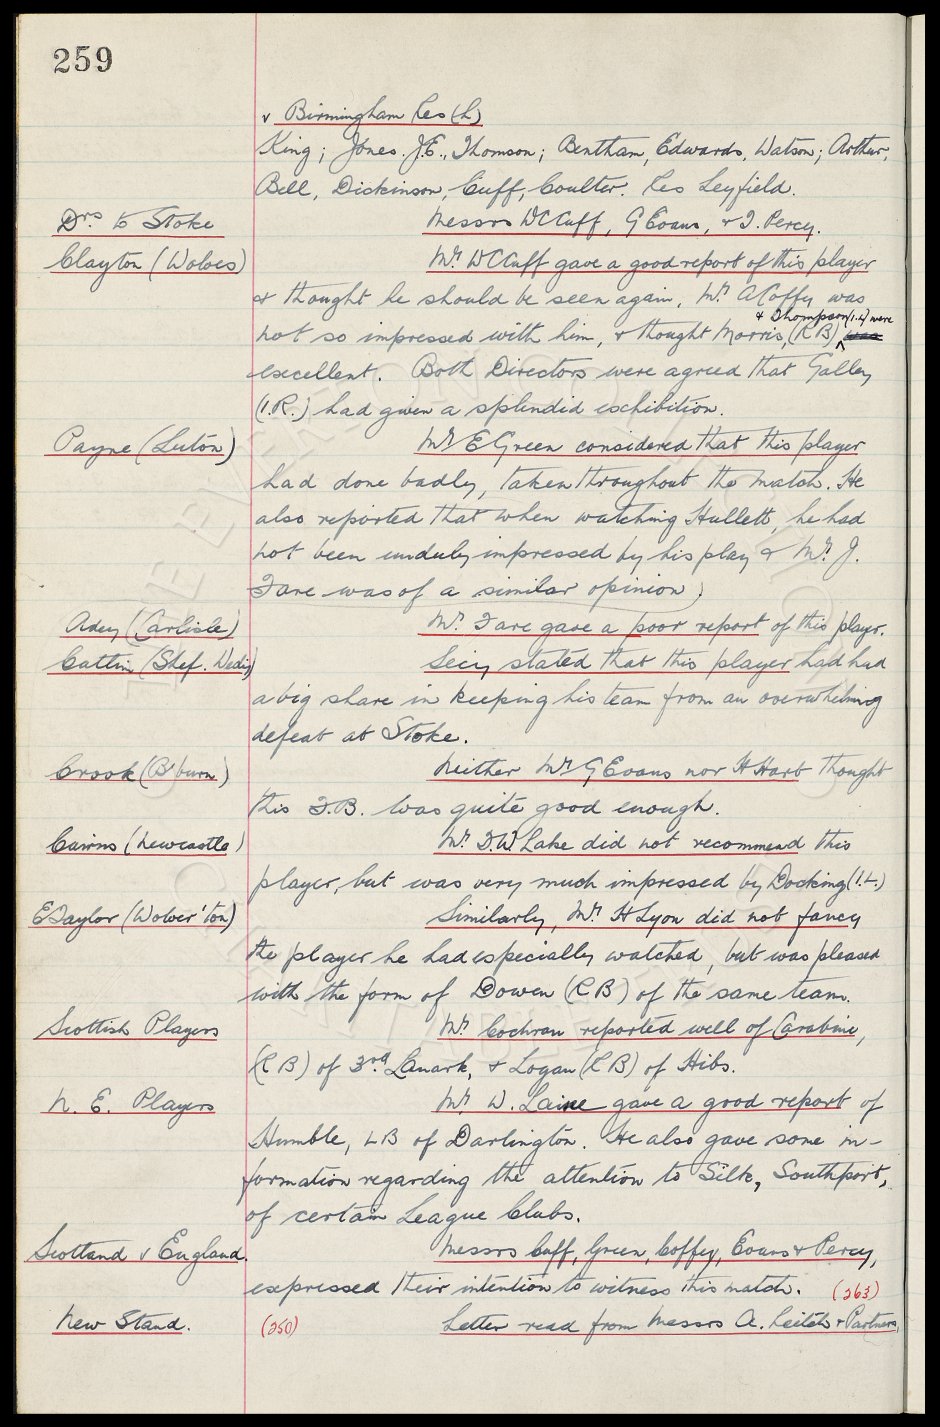 259
v Birmingham Res (h)
King; Jones. J.E., Thomson; Bentham, Edwards, Watson; Arthur,
Bell, Dickinson, Cuff, Coulter. Res Leyfield.
Drs to Stoke Messrs WCCuff, G Evans, & J. Percy.
Clayton (Wolves) Mr. WCCuff gave a good report of this player
& thought he should be seen again, Mr. A Coffey was
& Thompson (I.L) were
not so impressed with him, & thought Morris, (RB) was
excellent. Both Directors were agreed that Galley
(I.R.) had given a splendid exhibition.
Payne (Luton) Mr. E Green considered that this player
had done badly, taken throughout the match. He
also reported that when watching Hullett, he had
not been unduly impressed by his play & Mr. J.
Fare was of a similar opinion)
Adey (Carlisle) Mr. Fare gave a poor report of this player.
Cattlin (Shef. Wedy) Secy stated that this player had had
a big share in keeping his team from an overwhelming
defeat at Stoke.
Crook (B'burn) Neither Mr G Evans nor H Hart thought
this F.B. was quite good enough.
Cairns (Newcastle) Mr. F.W. Lake did not recommend this
player, but was very much impressed by Docking (I.L.)
E Taylor (Wolver'ton) Similarly, Mr. H Lyon did not fancy
the player he had especially watched, but was pleased
with the form of Dowen (RB) of the same team.
Scottish Players Mr. Cochran reported well of Carabine,
(RB) of 3rd Lanark, & Logan (RB) of Hibs.
N. E. Players Mr. W. Laine gave a good report of
Humble, LB of Darlington. He also gave some in-
formation regarding the attention to Silk, Southport,
of certain League Clubs.
Scotland v England. Messrs Cuff, Green, Coffey, Evans & Percy,
expressed their intention to witness this match. (263)
New Stand. (250) Letter read from Messrs A. Leitch & Partners,